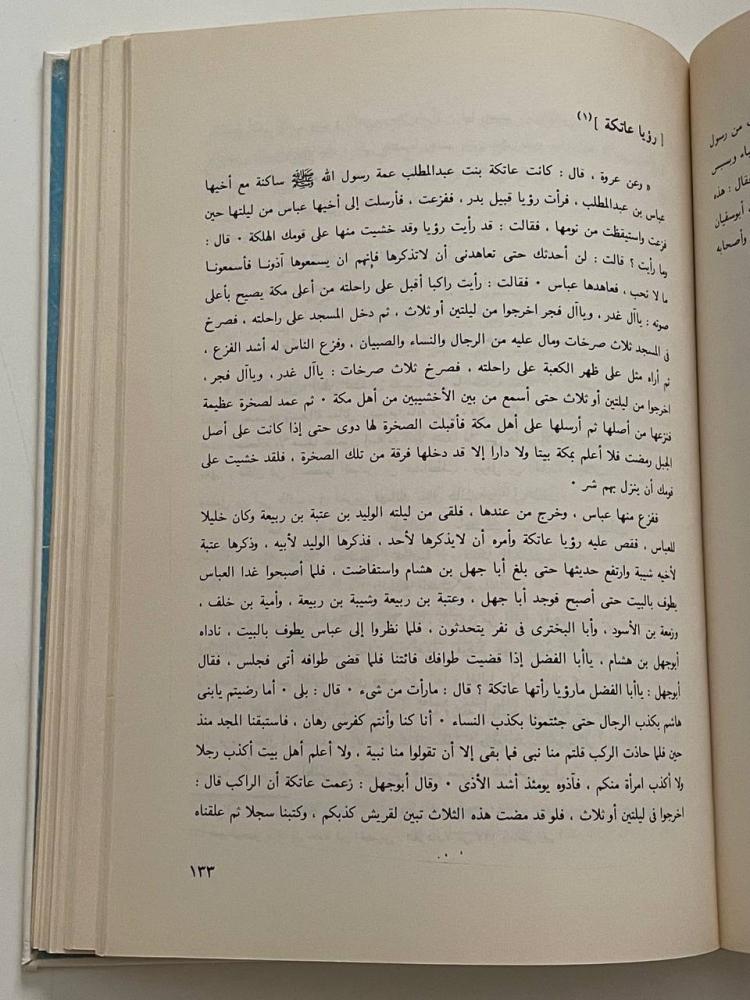 [ رؤيا عاتكة ](١)
« وعن عروة ، قال : كانت عاتكة بنت عبدالمطلب عمة رسول الله ﷺ ساكنة مع أخيها
عباس بن عبدالمطلب ، فرأت رؤيا قبيل بدر ، ففزعت ، فأرسلت إلى أخيها عباس من ليلتها حين
فزعت واستيقظت من نومها ، فقالت : قد رأيت رؤيا وقد خشيت منها على قومك الهلكة • قال :
وما رأيت ؟ قالت : لن أحدثك حتى تعاهدنى أن لاتذكرها فإنهم ان يسمعوها آذونا فأسمعونا
ما لا نحب ، فعاهدها عباس • فقالت : رأيت راكبا أقبل على راحلته من أعلى مكة يصيح بأعلى
صوته : ياآل غدر ، وياآل فجر اخرجوا من ليلتين أو ثلاث ، ثم دخل المسجد على راحلته ، فصرخ
فى المسجد ثلاث صرخات ومال عليه من الرجال والنساء والصبيان ، وفزع الناس له أشد الفزع ،
ثم أراه مثل على ظهر الكعبة على راحلته ، فصرخ ثلاث صرخات : ياآل غدر ، وياآل فجر ،
اخرجوا من ليلتين أو ثلاث حتى أسمع من بين الأخشبين من أهل مكة • ثم عمد لصخرة عظيمة
فنزعها من أصلها ثم أرسلها على أهل مكة فأقبلت الصخرة لها دوى حتى إذا كانت على أصل
الجبل رمضت فلا أعلم بمكة بيتا ولا دارا إلا قد دخلها فرقة من تلك الصخرة ، فلقد خشيت على
قومك أن ينزل بهم شر •
ففزع منها عباس ، وخرج من عندها ، فلقى من ليلته الوليد بن عتبة بن ربيعة وكان خليلا
للعباس ، فقص عليه رؤيا عاتكة وأمره أن لايذكرها لأحد ، فذكرها الوليد لأبيه ، وذكرها عتبة
لأخيه شيبة وارتفع حديثها حتى بلغ أبا جهل بن هشام واستفاضت ، فلما أصبحوا غدا العباس
يطوف بالبيت حتى أصبح فوجد أبا جهل ، وعتبة بن ربيعة وشيبة بن ربيعة ، وأمية بن خلف ،
وزمعة بن الأسود ، وأبا البخترى فى نفر يتحدثون ، فلما نظروا إلى عباس يطوف بالبيت ، ناداه
أبوجهل بن هشام ، ياأبا الفضل إذا قضيت طوافك فائتنا فلما قضى طوافه أتى فجلس ، فقال
أبوجهل : ياأبا الفضل مارؤيا رأتها عاتكة ؟ قال : مارأت من شىء • قال : بلى • أما رضيتم يابنى
هاشم بكذب الرجال حتى جئتمونا بكذب النساء • أنا كنا وأنتم كفرسى رهان ، فاستبقنا المجد منذ
حين فلما حاذت الركب قلتم منا نبى فما بقى إلا أن تقولوا منا نبية ، ولا أعلم أهل بيت أكذب رجلا
ولا أكذب امرأة منكم ، فآذوه يومئذ أشد الأذى • وقال أبوجهل : زعمت عاتكة أن الراكب قال :
اخرجوا فى ليلتين أو ثلاث ، فلو قد مضت هذه الثلاث تبين لقريش كذبكم ، وكتبنا سجلا ثم علقناه
١٣٣
من رسول
فقال : هذه
أبوسفيان
وأصحابه